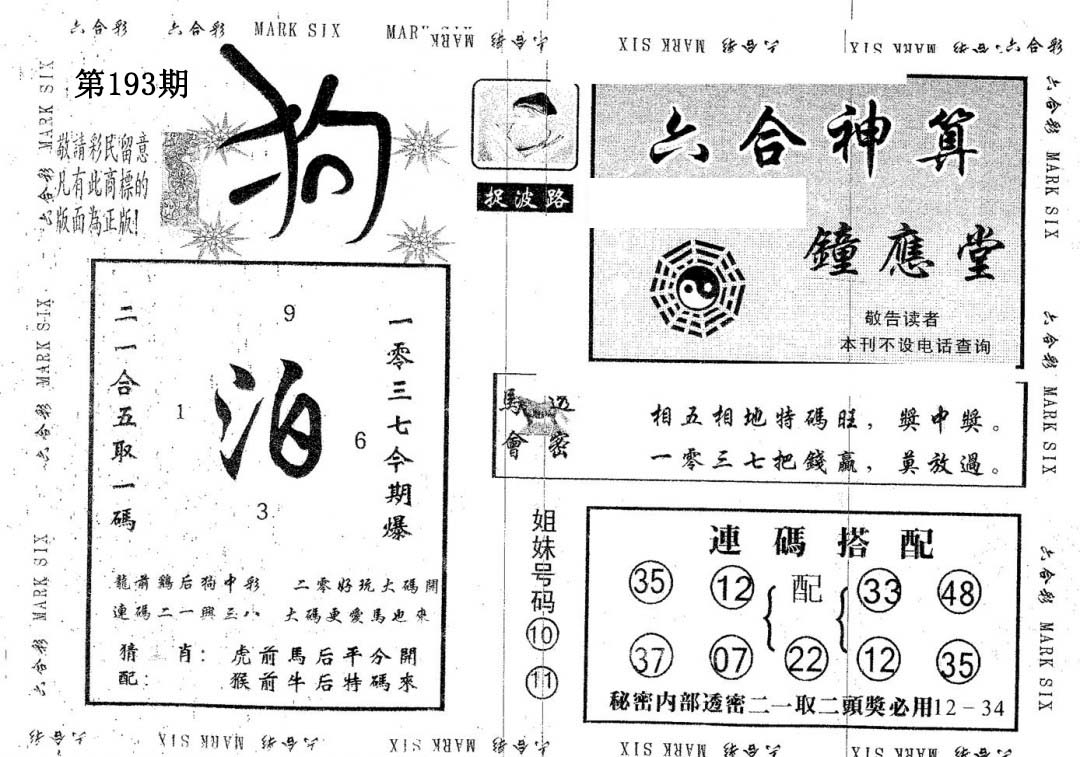 六合彩 六合彩 MARK SIX MARK SIX 六合彩 MARK SIX 六合彩 MARK SIX 六合彩
第193期
狗
敬請彩民留意
凡有此商標的
版面為正版!
捉波路
六合神算
鐘應堂
敬告读者
本刊不设电话查询
二一合五取一碼
9
1
泊
6
3
一零三七今期爆
龍前鷄后狗中彩 二零好玩大碼開
連碼二一興三八 大碼更愛馬也來
猜 肖: 虎前馬后平分開
配: 猴前牛后特碼來
馬會透密
相五相地特碼旺，獎中獎。
一零三七把錢贏，莫放過。
姐妹号码
10
11
連碼搭配
35 12 配 33 48
37 07 22 12 35
秘密内部透密二一取二頭獎必用12-34
六合彩 MARK SIX 六合彩 MARK SIX 六合彩 MARK SIX 六合彩
六合彩 MARK SIX 六合彩 MARK SIX 六合彩 MARK SIX
六合彩 MARK SIX 六合彩 MARK SIX 六合彩 MARK SIX 六合彩 MARK SIX 六合彩